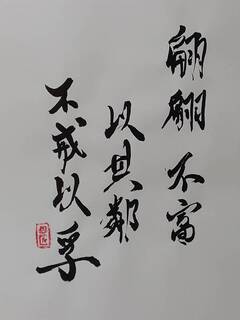 翩翩不富
以其鄰
不戒以孚